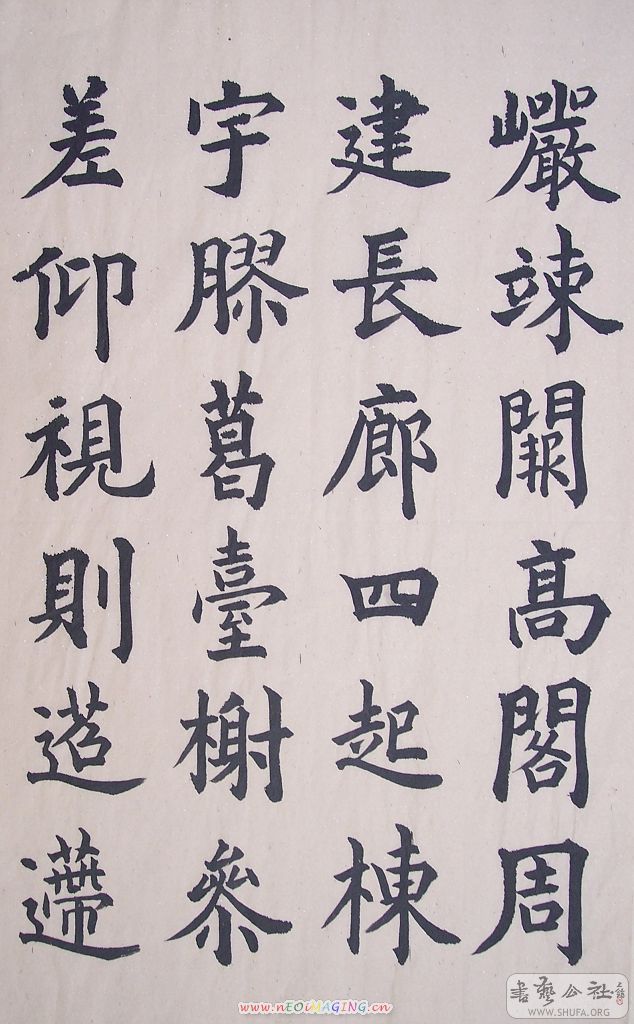 巖竦闕高閣周
建長廊四起棟
宇膠葛臺榭參
差仰視則迢遰
www.nEOiMAGING.cn
書藝公社
WWW.SHUFA.ORG